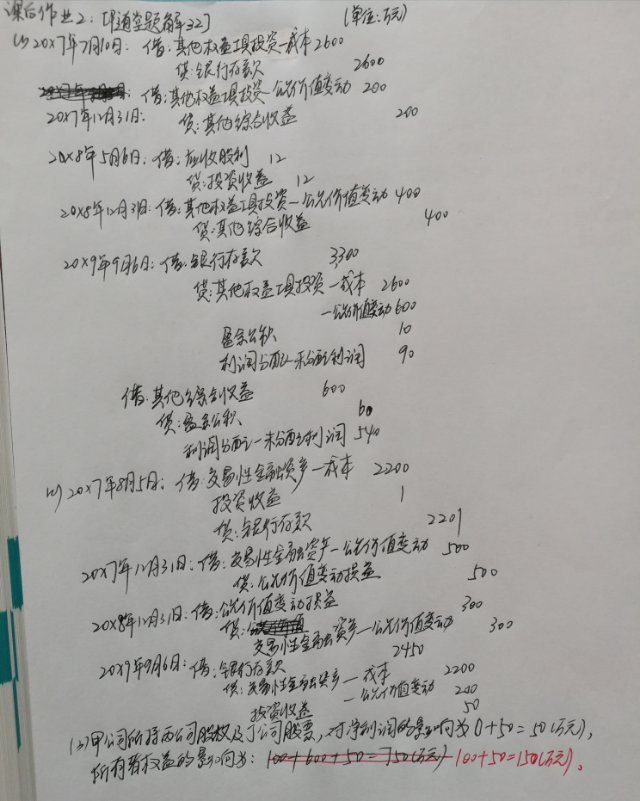 课后作业2:[普通空题解32]  (单位:万元)
(1) 20×7年7月10日:借:其他权益工具投资—成本 2600
贷:银行存款 2600
借:其他权益工具投资—公允价值变动 200
20×7年12月31日: 贷:其他综合收益 200
20×8年5月6日:借:应收股利 12
贷:投资收益 12
20×8年12月31日:借:其他权益工具投资—公允价值变动 400
贷:其他综合收益 400
20×9年9月6日:借:银行存款 3300
贷:其他权益工具投资—成本 2600
—公允价值变动 600
盈余公积 10
利润分配—未分配利润 90
借:其他综合收益 600
贷:盈余公积 60
利润分配—未分配利润 540
(2) 20×7年8月5日:借:交易性金融资产—成本 2200
投资收益 1
贷:银行存款 2201
20×7年12月31日:借:交易性金融资产—公允价值变动 500
贷:公允价值变动损益 500
20×8年12月31日:借:公允价值变动损益 300
贷:
交易性金融资产—公允价值变动 300
20×9年9月6日:借:银行存款 2450
贷:交易性金融资产—成本 2200
—公允价值变动 200
投资收益 50
(3)甲公司所持丙公司股权及丁公司股票,对净利润的影响为0+50=50(万元),
所有者权益的影响为:100+600+50=750(万元) 100+50=150(万元)。